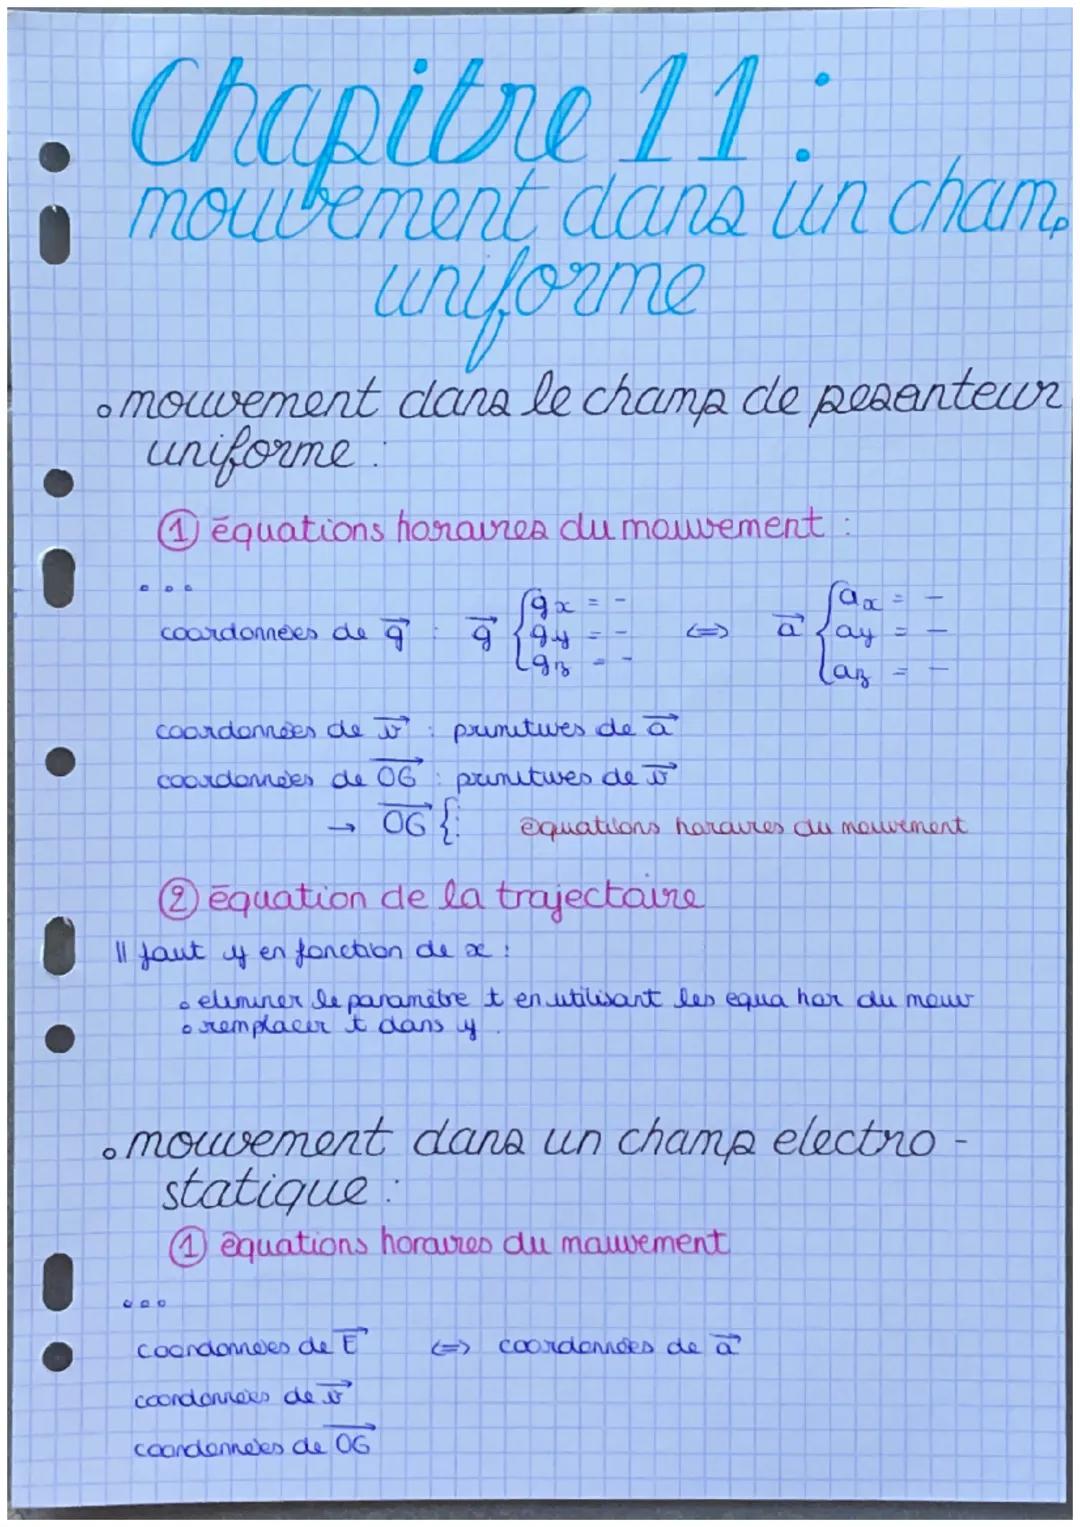 Chapitre 11 :
mouvement dans un champ
uniforme
• mouvement dans le champ de pesanteur
uniforme :
① équations horaires du mouvement :
...
coordonnées de g⃗ : g⃗ { gx = - ⇔ a⃗ { ax = -
gy = - ay = -
gz = - az = -
coordonnées de v⃗ : primitives de a⃗
coordonnées de OG⃗ : primitives de v⃗
→ OG⃗ { : équations horaires du mouvement
② équation de la trajectoire
Il faut y en fonction de x :
• eliminer le paramètre t en utilisant les equa hor du mouv
• remplacer t dans y .
• mouvement dans un champ electro -
statique :
① équations horaires du mouvement
...
coordonnées de E⃗ ⇔ coordonnées de a⃗
coordonnées de v⃗
coordonnées de OG⃗